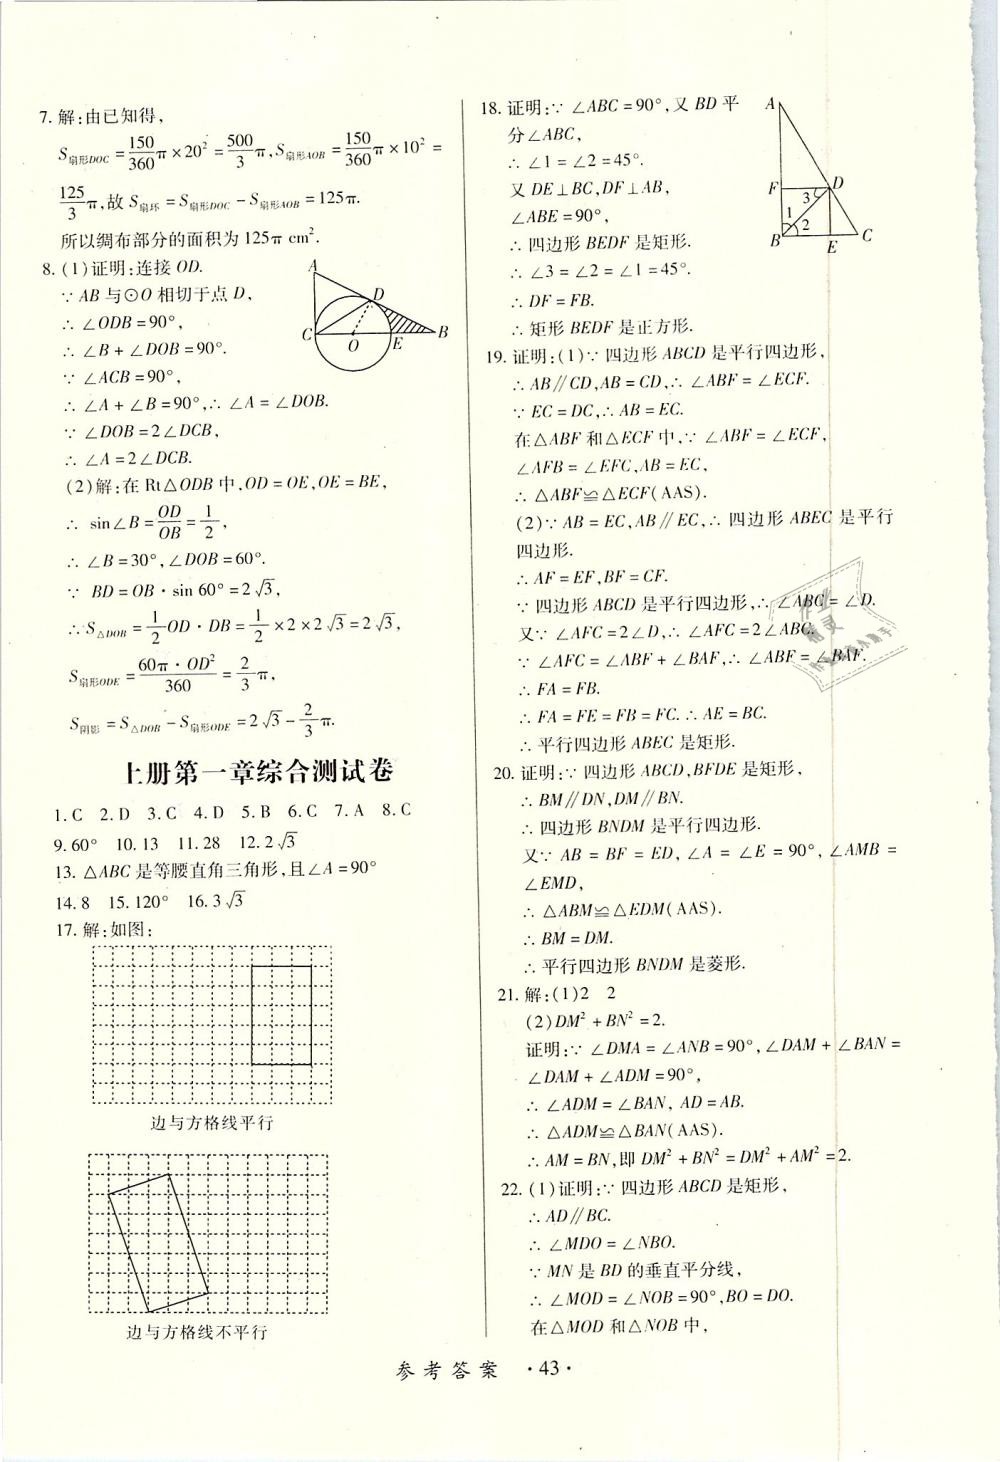 7. 解:由已知得,
S扇形DOC = 150/360 π × 20² = 500/3 π, S扇形AOB = 150/360 π × 10² =
125/3 π, 故 S扇环 = S扇形DOC - S扇形AOB = 125π.
所以绸布部分的面积为 125π cm².
8. (1)证明:连接 OD.
∵ AB 与⊙O 相切于点 D,
∴ ∠ODB = 90°,
∴ ∠B + ∠DOB = 90°.
∵ ∠ACB = 90°,
∴ ∠A + ∠B = 90°, ∴ ∠A = ∠DOB.
∵ ∠DOB = 2∠DCB,
∴ ∠A = 2∠DCB.
(2)解:在 Rt△ODB 中, OD = OE, OE = BE,
∴ sin∠B = OD/OB = 1/2,
∴ ∠B = 30°, ∠DOB = 60°.
∵ BD = OB · sin 60° = 2√3,
∴ S△DOB = 1/2 OD · DB = 1/2 × 2 × 2√3 = 2√3,
S扇形ODE = 60π · OD²/360 = 2/3 π,
S阴影 = S△DOB - S扇形ODE = 2√3 - 2/3 π.
A
D
C
O
E
B
上册第一章综合测试卷
1. C 2. D 3. C 4. D 5. B 6. C 7. A 8. C
9. 60° 10. 13 11. 28 12. 2√3
13. △ABC 是等腰直角三角形,且∠A = 90°
14. 8 15. 120° 16. 3√3
17. 解:如图:
边与方格线平行
边与方格线不平行
18. 证明:∵ ∠ABC = 90°, 又 BD 平
分∠ABC,
∴ ∠1 = ∠2 = 45°.
又 DE⊥BC, DF⊥AB,
∠ABE = 90°,
∴ 四边形 BEDF 是矩形.
∴ ∠3 = ∠2 = ∠1 = 45°.
∴ DF = FB.
∴ 矩形 BEDF 是正方形.
A
F
D
3
1
2
B
E
C
19. 证明:(1)∵ 四边形 ABCD 是平行四边形,
∴ AB∥CD, AB = CD, ∴ ∠ABF = ∠ECF.
∵ EC = DC, ∴ AB = EC.
在△ABF 和△ECF 中, ∵ ∠ABF = ∠ECF,
∠AFB = ∠EFC, AB = EC,
∴ △ABF≌△ECF(AAS).
(2)∵ AB = EC, AB∥EC, ∴ 四边形 ABEC 是平行
四边形.
∴ AF = EF, BF = CF.
∵ 四边形 ABCD 是平行四边形, ∴ ∠ABC = ∠D.
又∵ ∠AFC = 2∠D, ∴ ∠AFC = 2∠ABC.
∵ ∠AFC = ∠ABF + ∠BAF, ∴ ∠ABF = ∠BAF.
∴ FA = FB.
∴ FA = FE = FB = FC. ∴ AE = BC.
∴ 平行四边形 ABEC 是矩形.
20. 证明:∵ 四边形 ABCD, BFDE 是矩形,
∴ BM∥DN, DM∥BN.
∴ 四边形 BNDM 是平行四边形.
又∵ AB = BF = ED, ∠A = ∠E = 90°, ∠AMB =
∠EMD,
∴ △ABM≌△EDM(AAS).
∴ BM = DM.
∴ 平行四边形 BNDM 是菱形.
21. 解:(1)2 2
(2)DM² + BN² = 2.
证明:∵ ∠DMA = ∠ANB = 90°, ∠DAM + ∠BAN =
∠DAM + ∠ADM = 90°,
∴ ∠ADM = ∠BAN, AD = AB.
∴ △ADM≌△BAN(AAS).
∴ AM = BN, 即 DM² + BN² = DM² + AM² = 2.
22. (1)证明:∵ 四边形 ABCD 是矩形,
∴ AD∥BC.
∴ ∠MDO = ∠NBO.
∵ MN 是 BD 的垂直平分线,
∴ ∠MOD = ∠NOB = 90°, BO = DO.
在△MOD 和△NOB 中,
参考答案 ·43·